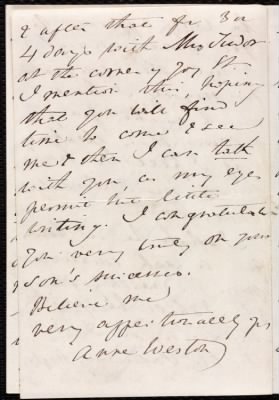 & after that for 3 or
4 days with Mrs Tudor
at the corner of Joy St.
I mention this, hoping
that you will find
time to come & see
me & then I can talk
with you, as my eyes
permit but little
writing. I congratulate
you very truly on your
son's success.
Believe me
very affectionately yrs
Anne Weston